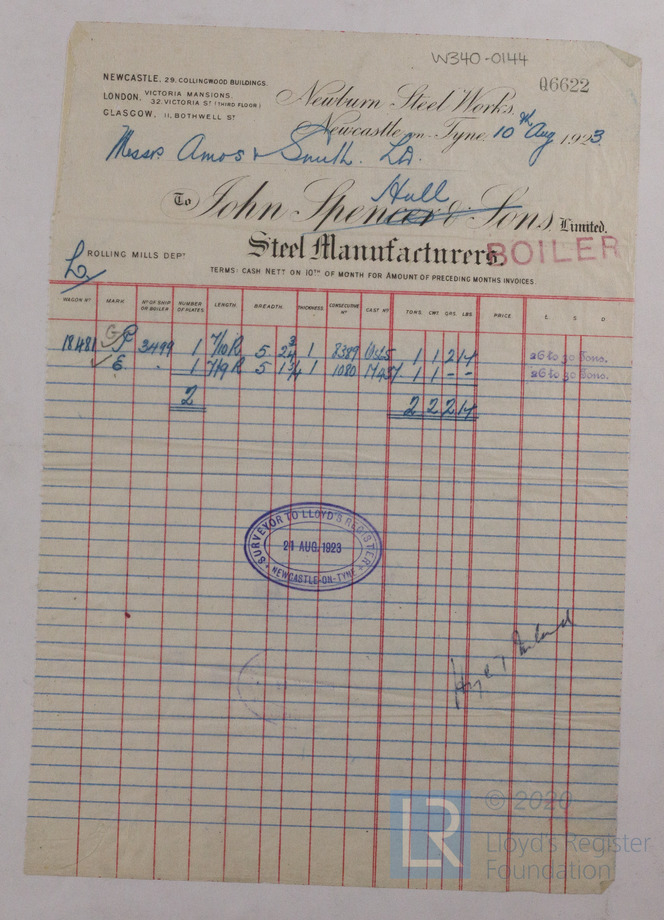 W340-0144
Q6622
NEWCASTLE, 29, COLLINGWOOD BUILDINGS.
LONDON, VICTORIA MANSIONS,
32, VICTORIA ST (THIRD FLOOR)
GLASGOW, 11, BOTHWELL ST
Newburn Steel Works,
Newcastle on Tyne, 10th Aug 1923
Messrs Amos & Smith. Ld.
Hull
To John Spencer & Sons, Limited.
Steel Manufacturers
BOILER
ROLLING MILLS DEPT
TERMS: CASH NETT ON 10TH OF MONTH FOR AMOUNT OF PRECEDING MONTHS INVOICES
WAGON No MARK No OF SHIP OR BOILER NUMBER OF PLATES LENGTH. BREADTH. THICKNESS. CONSECUTIVE No CAST No TONS. CWT. QRS. LBS. PRICE £ S D
18481 3499 1 7/10 R 5. 2 3/4 1 8389 1 1 2 14 26 to 30 Tons.
E. 1 7/9 R 5 1 3/4 1 1080 1 1 - - 26 to 30 Tons.
2 2 2 2 14
SURVEYOR TO LLOYD'S REGISTER
21 AUG. 1923
NEWCASTLE-ON-TYNE
LR
© 2020
Lloyd's Register
Foundation